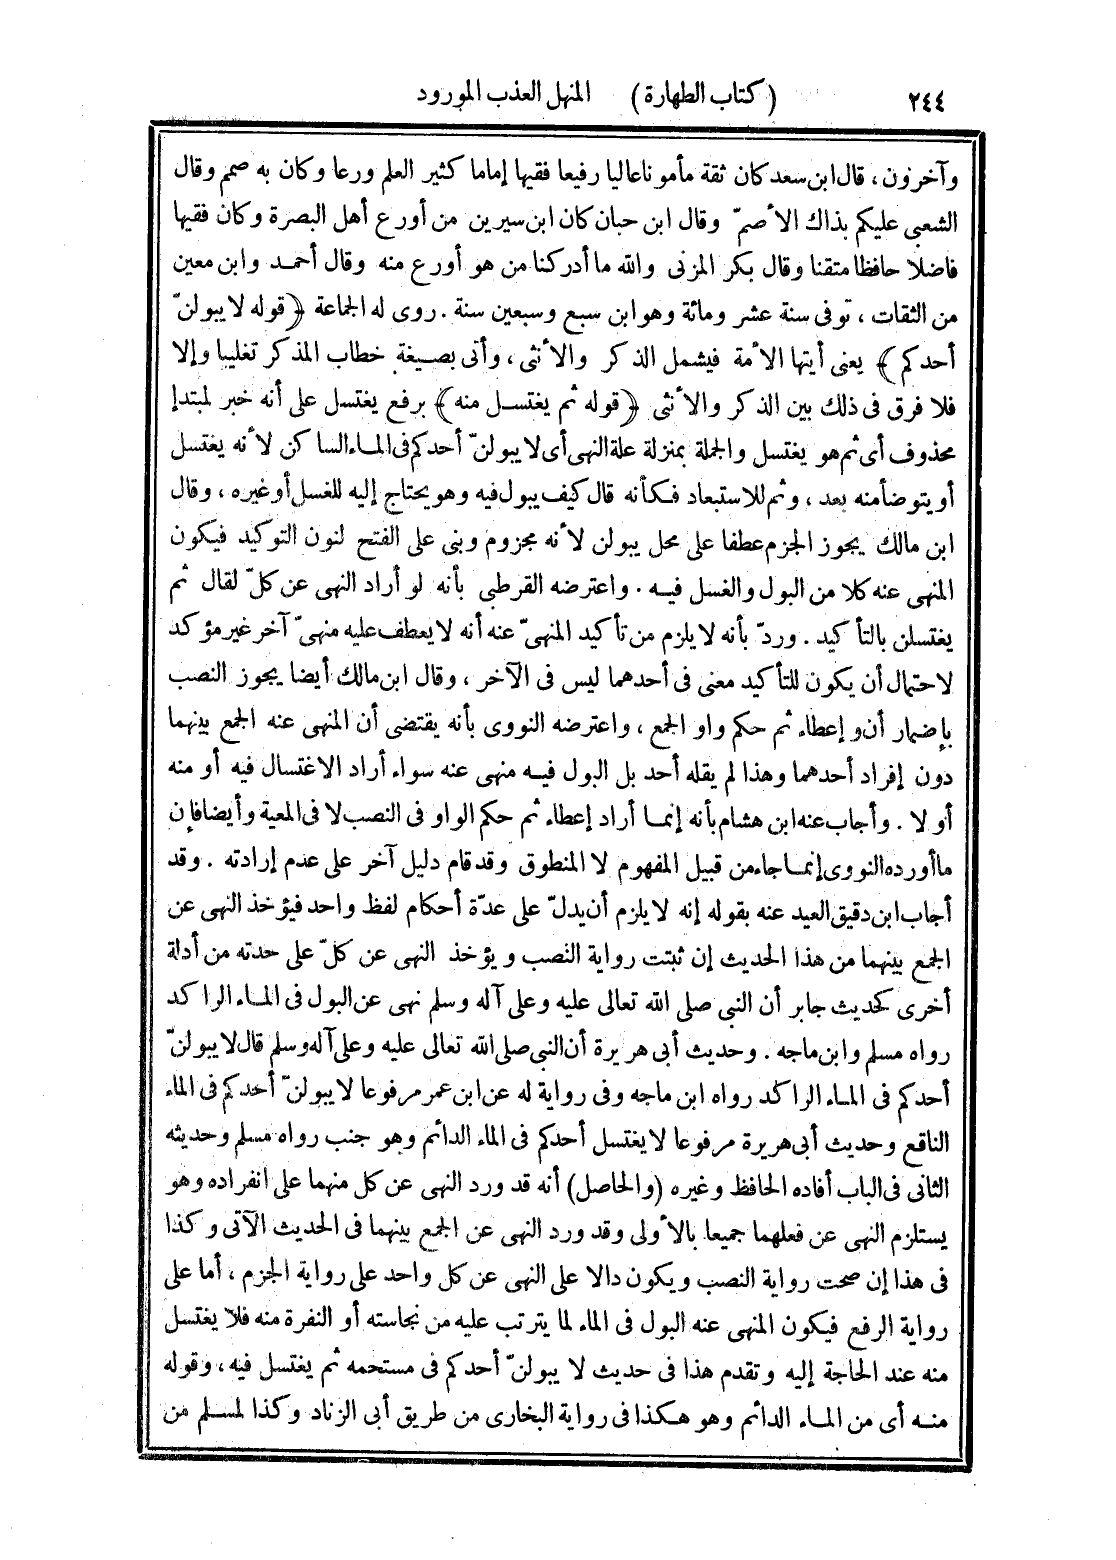 ٢٤٤ (كتاب الطهارة) المنهل العذب المورود
وآخرون ، قال ابن سعد كان ثقة مأمونا عاليا رفيعا فقيها إماما كثير العلم ورعا وكان به صمم وقال
الشعبى عليكم بذاك الأصمّ وقال ابن حبان كان ابن سيرين من أورع أهل البصرة وكان فقيها
فاضلا حافظا متقنا وقال بكر المزنى والله ما أدركنا من هو أورع منه وقال أحمد وابن معين
من الثقات ، توفى سنة عشر ومائة وهو ابن سبع وسبعين سنة . روى له الجماعة ﴿قوله لايبولنّ
أحدكم﴾ يعنى أيتها الأمة فيشمل الذكر والأنثى ، وأتى بصيغة خطاب المذكر تغليبا وإلا
فلا فرق فى ذلك بين الذكر والأنثى ﴿قوله ثم يغتسل منه﴾ برفع يغتسل على أنه خبر لمبتدإ
محذوف أى ثم هو يغتسل والجملة بمنزلة علة النهى أى لايبولنّ أحدكم فى الماء الساكن لأنه يغتسل
أو يتوضأ منه بعد ، وثم للاستبعاد فكأنه قال كيف يبول فيه وهو يحتاج إليه للغسل أو غيره ، وقال
ابن مالك يجوز الجزم عطفا على محل يبولن لأنه مجزوم وبنى على الفتح لنون التوكيد فيكون
المنهى عنه كلا من البول والغسل فيه . واعترضه القرطبى بأنه لو أراد النهى عن كلّ لقال ثم
يغتسلن بالتأكيد . وردّ بأنه لايلزم من تأكيد المنهىّ عنه أنه لايعطف عليه منهىّ آخر غير مؤكد
لاحتمال أن يكون للتأكيد معنى فى أحدهما ليس فى الآخر ، وقال ابن مالك أيضا يجوز النصب
بإضمار أن وإعطاء ثم حكم واو الجمع ، واعترضه النووى بأنه يقتضى أن المنهى عنه الجمع بينهما
دون إفراد أحدهما وهذا لم يقله أحد بل البول فيه منهى عنه سواء أراد الاغتسال فيه أو منه
أو لا . وأجاب عنه ابن هشام بأنه إنما أراد إعطاء ثم حكم الواو فى النصب لا فى المعية وأيضا فإن
ما أورده النووى إنما جاء من قبيل المفهوم لا المنطوق وقد قام دليل آخر على عدم إرادته . وقد
أجاب ابن دقيق العيد عنه بقوله إنه لايلزم أن يدلّ على عدّة أحكام لفظ واحد فيؤخذ النهى عن
الجمع بينهما من هذا الحديث إن ثبتت رواية النصب ويؤخذ النهى عن كلّ على حدته من أدلة
أخرى كحديث جابر أن النبى صلى الله تعالى عليه وعلى آله وسلم نهى عن البول فى الماء الراكد
رواه مسلم وابن ماجه . وحديث أبى هريرة أن النبى صلى الله تعالى عليه وعلى آله وسلم قال لايبولنّ
أحدكم فى الماء الراكد رواه ابن ماجه وفى رواية له عن ابن عمر مرفوعا لايبولنّ أحدكم فى الماء
الناقع وحديث أبى هريرة مرفوعا لايغتسل أحدكم فى الماء الدائم وهو جنب رواه مسلم وحديثه
الثانى فى الباب أفاده الحافظ وغيره (والحاصل) أنه قد ورد النهى عن كل منهما على انفراده وهو
يستلزم النهى عن فعلهما جميعا بالأولى وقد ورد النهى عن الجمع بينهما فى الحديث الآتى وكذا
فى هذا إن صحت رواية النصب ويكون دالا على النهى عن كل واحد على رواية الجزم ، أما على
رواية الرفع فيكون المنهى عنه البول فى الماء لما يترتب عليه من نجاسته أو النفرة منه فلا يغتسل
منه عند الحاجة إليه وتقدم هذا فى حديث لا يبولنّ أحدكم فى مستحمه ثم يغتسل فيه ، وقوله
منه أى من الماء الدائم وهو هكذا فى رواية البخارى من طريق أبى الزناد وكذا لمسلم من